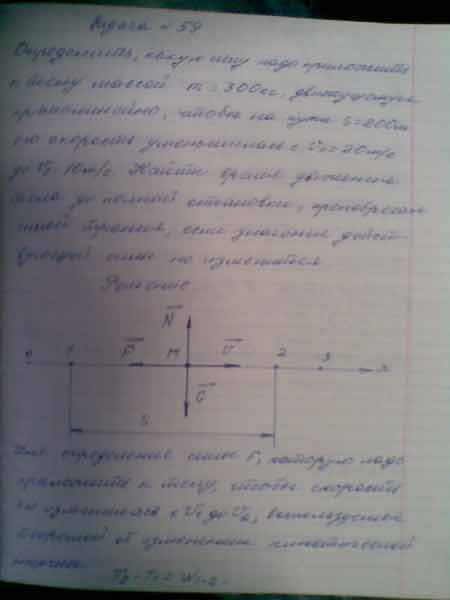 Задача № 59
Определить, какую силу надо приложить
к телу массой m = 300 кг, движущемуся
прямолинейно, чтобы на пути S = 200м
его скорость уменьшилась с V₁ = 20 м/с
до V₂ 10 м/с. Найти время движения
тела до полной остановки, пренебрегая
силой трения, если значение дейст-
вующей силы не изменится
Решение
N
0 1 F M V 2 3 x
G
S
Для определения силы F, которую надо
приложить к телу, чтобы скорость
изменилась с V₁ до V₂, воспользуемся
теоремой об изменении кинетической
энергии
T₂ - T₁ = W₁-₂